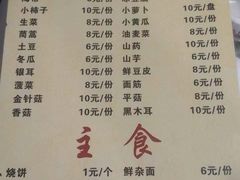 小柿子 10元/份 小萝卜 10元/盘
生菜 8元/份 小黄瓜 10元/份
茼蒿 8元/份 油麦菜 8元/份
土豆 8元/份 山药 10元/份
冬瓜 6元/份 山芋 6元/份
银耳 10元/份 鲜豆皮 8元/份
菠菜 8元/份 面筋 6元/份
金针菇 10元/份 平菇 8元/份
香菇 10元/份 黑木耳 10元/份
主食
烧饼 1元/个 鲜杂面 6元/份